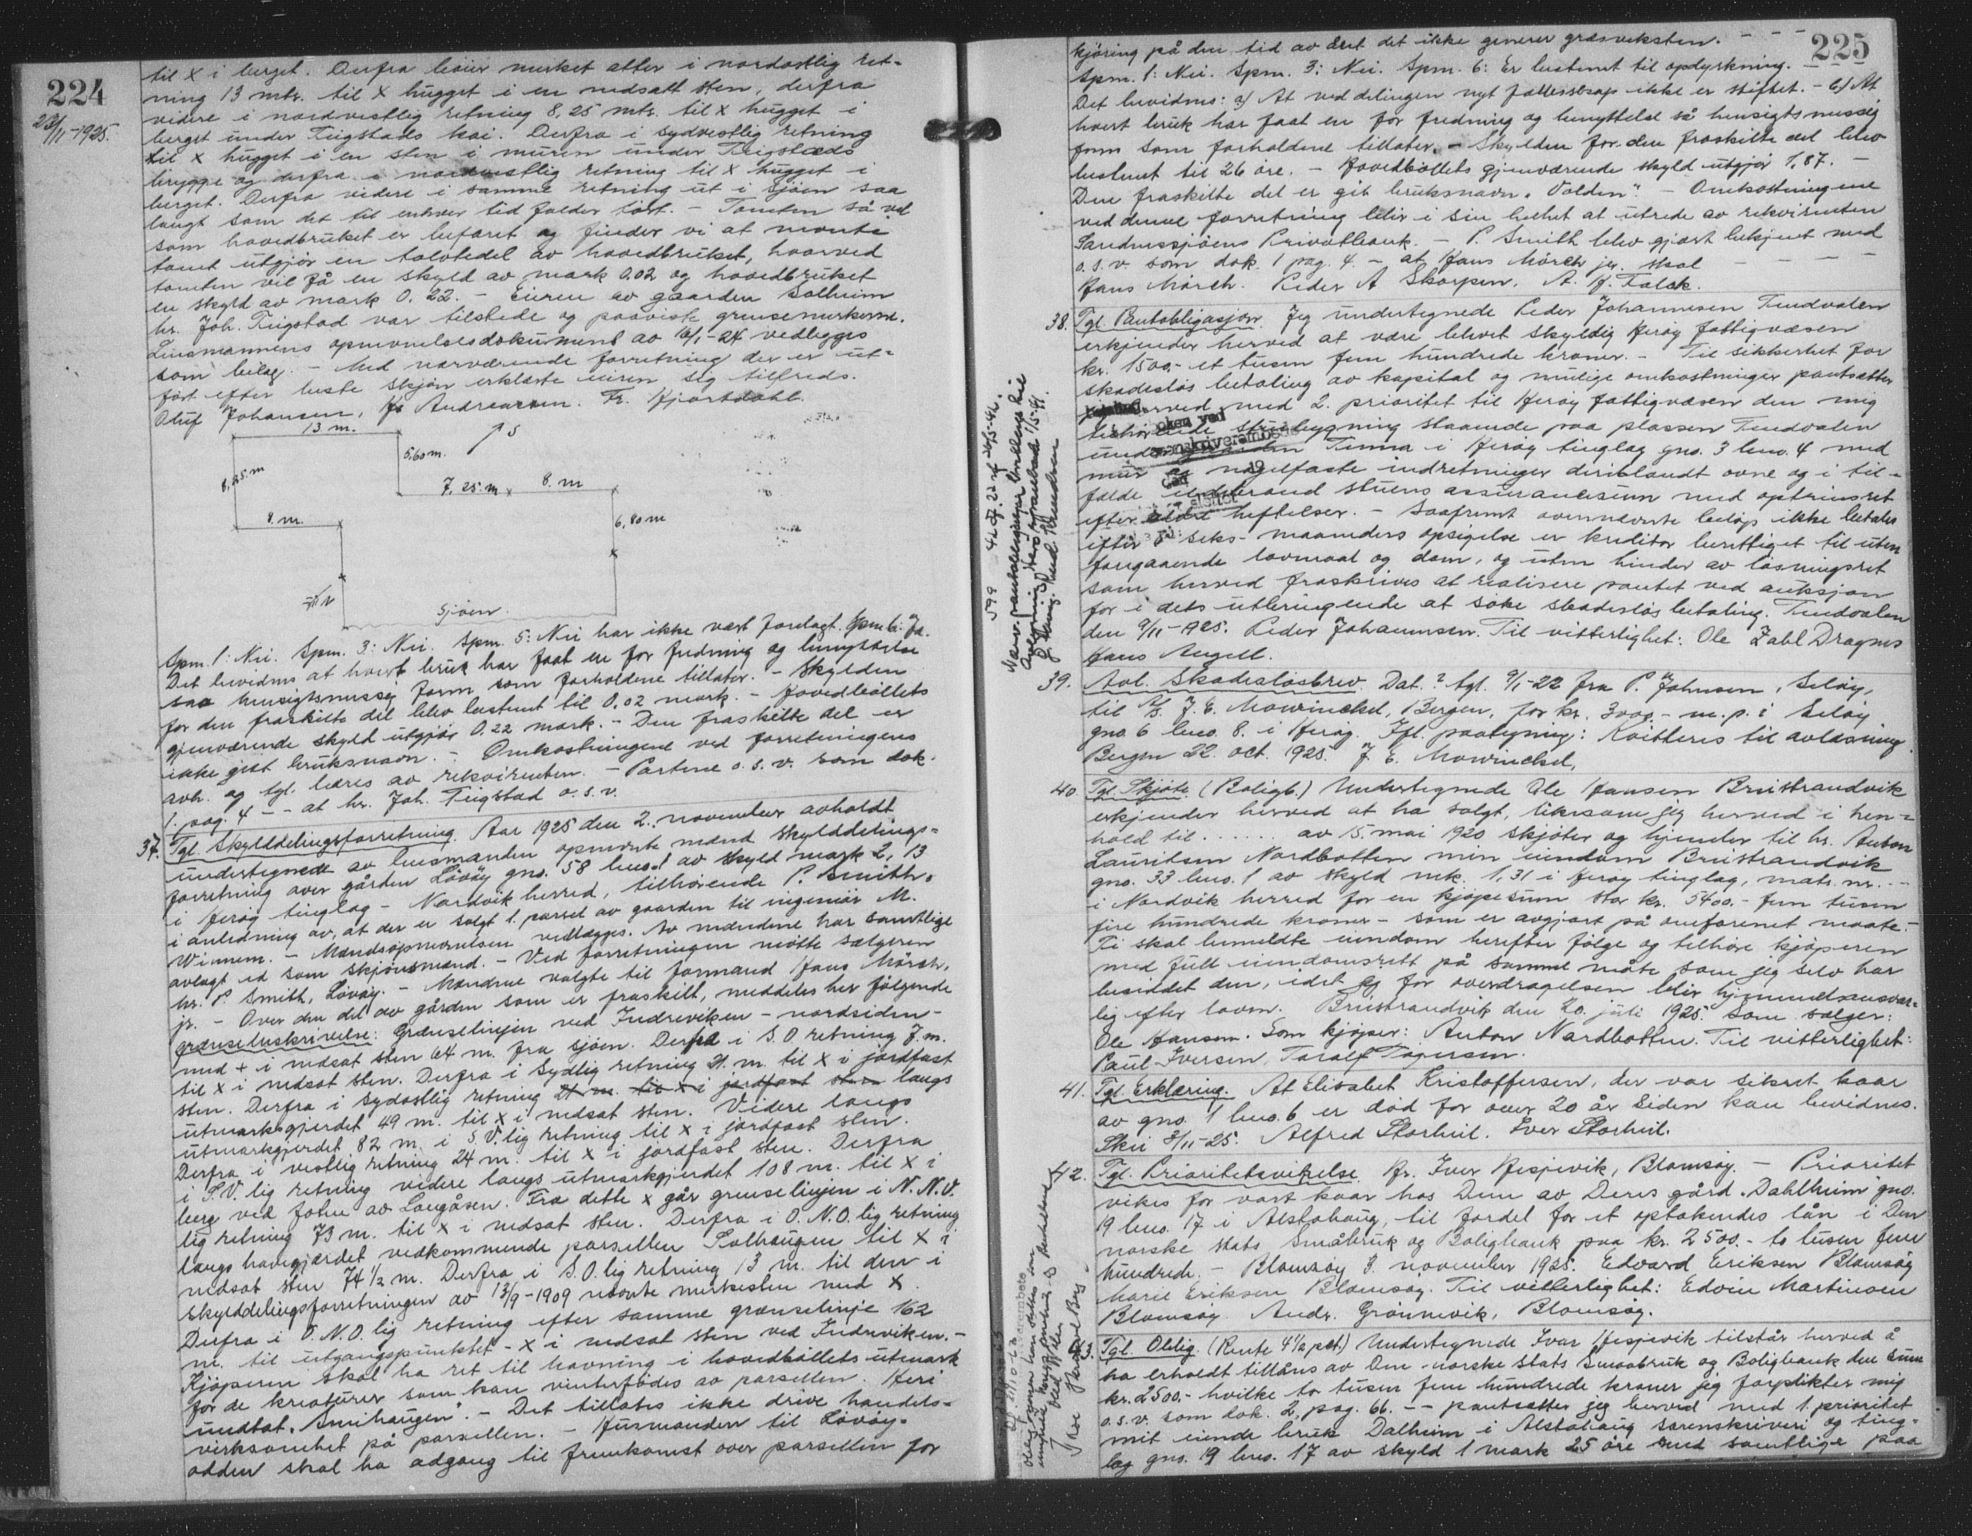 224
23/11-1925.
til X i berget. Derfra böier merket atter i nordostlig ret-
ning 13 mtr. til X hugget i en nedsatt sten, derfra
videre i nordvestlig retning 8,25 mtr. til X hugget i
berget under Teigstads kai. Derfra i sydvestlig retning
til X hugget i en sten i muren under Teigstads
brygge og derfra i nordvestlig retning til X hugget i
berget. Derfra videre i samme retning ut i sjöen saa
langt som det til enhver tid falder tört. - Tomten så vel
som hovedbruket er befaret og finder vi at nevnte
tomt utgjör en tolvtedel av hovedbruket, hvorved
tomten vil få en skyld av mark 0.02 og hovedbruket
en skyld av mark 0.22. - Eieren av gaarden Solheim
hr. Joh. Teigstad var tilstede og paaviste grensemerkerne.
Lensmannens opnevnelsesdokument av 10/1-24 vedlegges
som bilag. - Med nærværende forretning der er ut-
fört efter beste skjön erklærte eieren sig tilfreds.
Oluf Johansen, Andreassen. Fr. Hjortdahl.
13 m.
S
5,60 m.
8,25 m
7,25 m
8. m
8. m.
6,80 m
N
Sjöen.
Spm. 1: Nei. Spm. 3: Nei. Spm. 5: Nei har ikke vært forelagt. Spm. 6: Ja.
Det bevidnes at hvert bruk har faat en for fredning og benyttelse
saa hensigtsmessig form som forholdene tillater. - Skylden
for den fraskilte del blev bestemt til 0,02 mark. - Hovedböllets
gjenværende skyld utgjör 0.22 mark. - Den fraskilte del er
ikke git bruksnavn. - Omkostningene ved forretningens
avh. og tgl. bæres av rekvirenten. - Partene o.s.v. som dok.
1 pag. 4 - - at hr. Joh. Teigstad o.s.v.
37. Tgl. Skylddelingsforretning. Aar 1925 den 2. november avholdt
undertegnede av lensmanden opnævnte mænd skylddelings-
forretning over gården Lövöy gno. 58 bno. 1 av skyld mark 2,13
i Heröy tinglag - Nordvik herred, tilhörende P. Smith,
i anledning av, at der er solgt 1. parsel av gaarden til ingeniör M.
Winnem. - Mændsopnævnelsen vedlægges. Av mændene har samtlige
avlagt ed som skjönsmænd. - Ved forretningen mötte sælgeren
hr. P. Smith, Lövöy. - Mændene valgte til formand Hans Mörch,
jr. - Over den del av gården som er fraskilt, meddeles her fölgende
grænsebeskrivelse: Grænselinjen ved Indreviken - nordsiden -
med + i nedsat sten 64 m. fra sjöen. Derfra i S.O retning 7. m.
til X i nedsat sten. Derfra i Sydlig retning 21. m. til X i jordfast
sten. Derfra i sydostlig retning 21 m. til X i jordfast sten langs
utmarksgjerdet 49 m. til X i nedsat sten. Videre langs
utmarkgjerdet 82 m. i S.V.lig retning til X i jordfast sten.
Derfra i vestlig retning 24 m. til X i jordfast sten. Derfra
i S.V.lig retning videre langs utmarkgjerdet 108 m. til X i
berg ved foten av Langåsen. Fra dette X går grenselinjen i N.N.V.
lig retning 73 m. til X i nedsat sten. Derfra i O.N.O.lig retning
langs havegjærdet vedkommende parsellen Solhaugen til X i
nedsat sten 74 1/2 m. Derfra i S.O.lig retning 13 m. til den i
skylddelingsforretningen av 13/9-1909 nævnte merkesten med X
Derfra i O.N.O.lig retning efter samme grænselinje 162
m. til utgangspunktet - X i nedsat sten ved Indreviken. -
Kjöperen skal ha ret til havning i hovedböllets utmark
for de kreaturer som kan vinterfödes av parsellen. Heri
undtat „Smihaugen". - Det tillates ikke drive handels-
virksomhet på parsellen. - Husmanden til Lövöy-
odden skal ha adgang til fremkomst over parsellen for
225
kjöring på den tid av året det ikke generer græsveksten. - - -
Spm. 1: Nei. Spm. 3: Nei. Spm. 6: Er bestemt til opdyrkning.
Det bevidnes: a) At ved delingen nyt fællesskap ikke er stiftet. - b) At
hvert bruk har faat en for fredning og benyttelse så hensigtsmessig
form som forholdene tillater. - Skylden for den fraskilte del blev
bestemt til 26 öre. - Hovedböllets gjenværende skyld utgjör 1,87. -
Den fraskilte del er git bruksnavn „Volden" - Omkostningene
ved denne forretning blir i sin helhet at utrede av rekvirenten
Sandnessjöens Privatbank. - P. Smith blev gjort bekjent med
o.s.v som dok. 1 pag. 4. - at Hans Mörch jr. skal - - - -
Hans Mörch. Peder A Skorpen. A. H. Falck.
38. Tgl. Pantobligasjon. Jeg undertegnede Peder Johannesen Tendvalen
erkjender herved at være blevet skyldig Heröy fattigvæsen
kr. 1500,- et tusen fem hundrede kroner. - Til sikkerhet for
skadeslös betaling av kapital og mulige omkostninger pantsætter
jeg herved med 2. prioritet til Heröy fattigvæsen den mig
tilhörende stuebygning staaende paa plassen Tendvalen
under gaarden Tenna i Heröy tinglag gno. 3 bno. 4 med
mur og nagelfaste indretninger deriblandt ovne og i til-
fælde ildebrand stuens assurancesum med optrinsret
efter ældre heftelser. - Saafremt ovennævnte belöp ikke betales
efter 6 seks - maaneders opsigelse er kreditor berettiget til uten
forgaaende lovmaal og dom, og uten hinder av lösningsret
som herved fraskrives at realisere pantet ved auksjon
for i dets utbringende at söke skadeslös betaling. Tendvalen
den 9/11-1925. Peder Johannesen. Til vitterlighet: Ole Zahl Dragnes
Hans Angell.
39. Avl. Skadeslösbrev. Dat. ? tgl. 9/1-22 fra P. Johnsen, Selöy,
til A/S. J. E. Mowinckel, Bergen, for kr. 3000,- m.p. i Selöy
gno 6 bno. 8. i Heröy. Ifl. paategning: Kvitteres til avlæsning.
Bergen 22. oct. 1925. J. E. Mowinckel.
40. Tgl. Skjöte. (Boligb.) Undertegnede Ole Hansen Breistrandvik
erkjender herved at ha solgt, likesom jeg herved i hen-
hold til ...... av 15. mai 1920 skjöter og hjemler til hr. Anton
Lauritsen Nordbotten min eiendom Breistrandvik
gno. 33 bno. 1 av skyld mk. 1,31 i Heröy tinglag, matr. nr. -
i Nordvik herred for en kjöpesum stor kr. 5400.- fem tusen
fire hundrede kroner - som er avgjort på omforenet maate. -
Ti skal bemeldte eiendom herefter fölge og tilhöre kjöperen
med full eiendomsrett på samme måte som jeg selv har
besiddet den, idet jeg for overdragelsen blir hjemmelsansvar-
lig efter loven. Breistrandvik den 20. juli 1925. Som sælger:
Ole Hansen. Som kjöper: Anton Nordbotten. Til vitterlighet:
Paul Iversen, Toralf Torgersen.
41. Tgl. Erklæring. At Elisabet Kristoffersen, der var sikret kaar
av gno. 1 bno. 6 er död for over 20 år siden kan bevidnes.
Skei 3/11-25. Alfred Storheil. Iver Storheil.
42. Tgl. Prioritetsvikelse. Hr. Iver Hesjevik, Blomsöy. - Prioritet
vikes for vort kaar hos Dem av Deres gård „Dahlheim" gno.
19 bno. 17 i Alstahaug, til fordel for et optakendes lån i Den
norske stats Småbruk og Boligbank paa kr. 2500.- to tusen fem
hundrede. - Blomsöy 3. november 1925. Edvard Eriksen Blomsöy
Marie Eriksen Blomsöy. Til vitterlighet: Edvin Martinsen
Blomsöy. Andr. Grönnevik, Blomsöy.
Tgl. Oblig. (Rente 4 1/2 pct.) Undertegnede Ivar Hesjevik tilstår herved å
ha erholdt tillåns av Den norske Stats Smaabruk og Boligbank den sum
kr. 2500,- hvilke to tusen fem hundrede kroner jeg forplikter mig
o.s.v. som dok. 2, pag. 66. - - pantsætter jeg herved med 1. prioritet
mit eiende bruk Dalheim i Alstahaug sorenskriveri og ting-
lag gno. 19 bno. 17 av skyld 1 mark 25 öre med samtlige paa